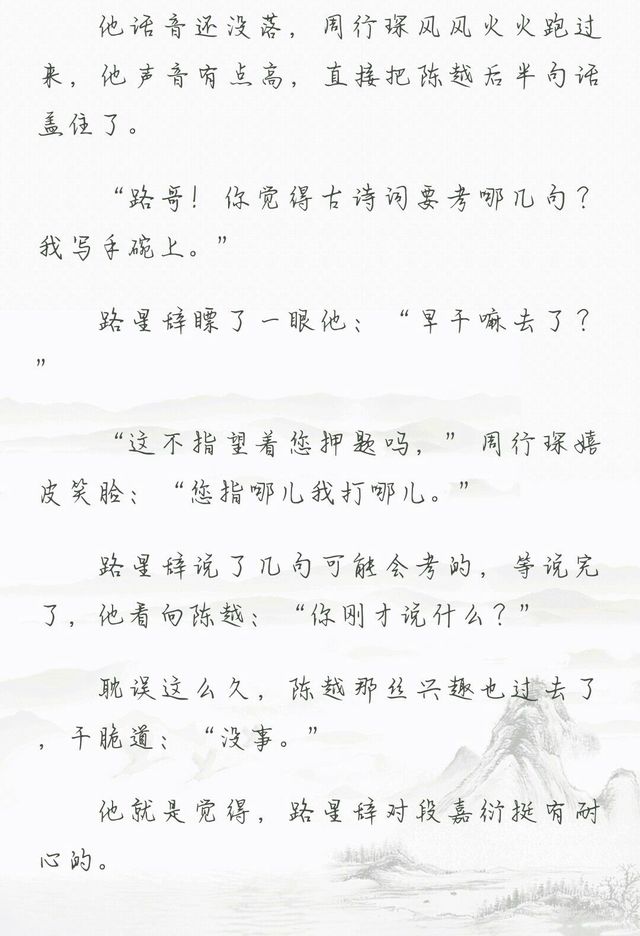 他话音还没落，周行琛风风火火跑过
来，他声音有点高，直接把陈越后半句话
盖住了。
“路哥！你觉得古诗词要考哪几句？
我写手碗上。”
路星辞瞟了一眼他：“早干嘛去了？
”
“这不指望着您押题吗，”周行琛嬉
皮笑脸：“您指哪儿我打哪儿。”
路星辞说了几句可能会考的，等说完
了，他看向陈越：“你刚才说什么？”
耽误这么久，陈越那丝兴趣也过去了
，干脆道：“没事。”
他就是觉得，路星辞对段嘉衍挺有耐
心的。